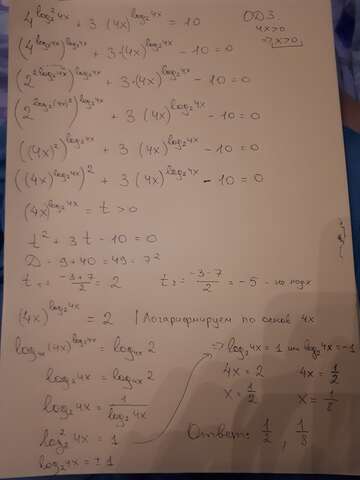 4^(log₂² 4x) + 3·(4x)^(log₂ 4x) = 10
ОДЗ
4x>0
=> x>0
(4^(log₂ 4x))^(log₂ 4x) + 3·(4x)^(log₂ 4x) - 10 = 0
(2^(2 log₂ 4x))^(log₂ 4x) + 3·(4x)^(log₂ 4x) - 10 = 0
(2^(log₂ (4x)²))^(log₂ 4x) + 3 (4x)^(log₂ 4x) - 10 = 0
((4x)²)^(log₂ 4x) + 3 (4x)^(log₂ 4x) - 10 = 0
((4x)^(log₂ 4x))² + 3 (4x)^(log₂ 4x) - 10 = 0
(4x)^(log₂ 4x) = t > 0
t² + 3t - 10 = 0
D = 9 + 40 = 49 = 7²
t = (-3+7)/2 = 2 t = (-3-7)/2 = -5 -
(4x)^(log₂ 4x) = 2 | Логарифмируем по основ 4x
log₄ₓ (4x)^(log₂ 4x) = log₄ₓ 2
log₂ 4x = log₄ₓ 2
log₂ 4x = 1/(log₂ 4x)
log₂² 4x = 1
log₂ 4x = ± 1
=> log₂ 4x = 1 или log₂ 4x = -1
4x = 2 4x = 1/2
x = 1/2 x = 1/8
Ответ: 1/2, 1/8